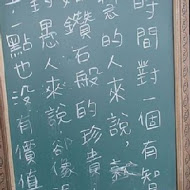 時間對一個有知
的人來說,
如鑽石般的珍貴
對愚人來說,卻像
一點也沒有價值